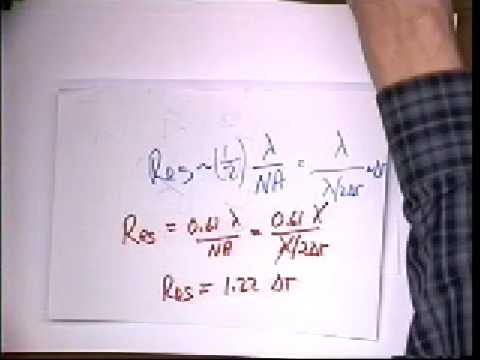 Res ~ (1/2) λ/NA = λ/λ/2Δr ~ Δr
Res = 0.61 λ/NA = 0.61 λ/λ/2Δr
Res = 1.22 Δr